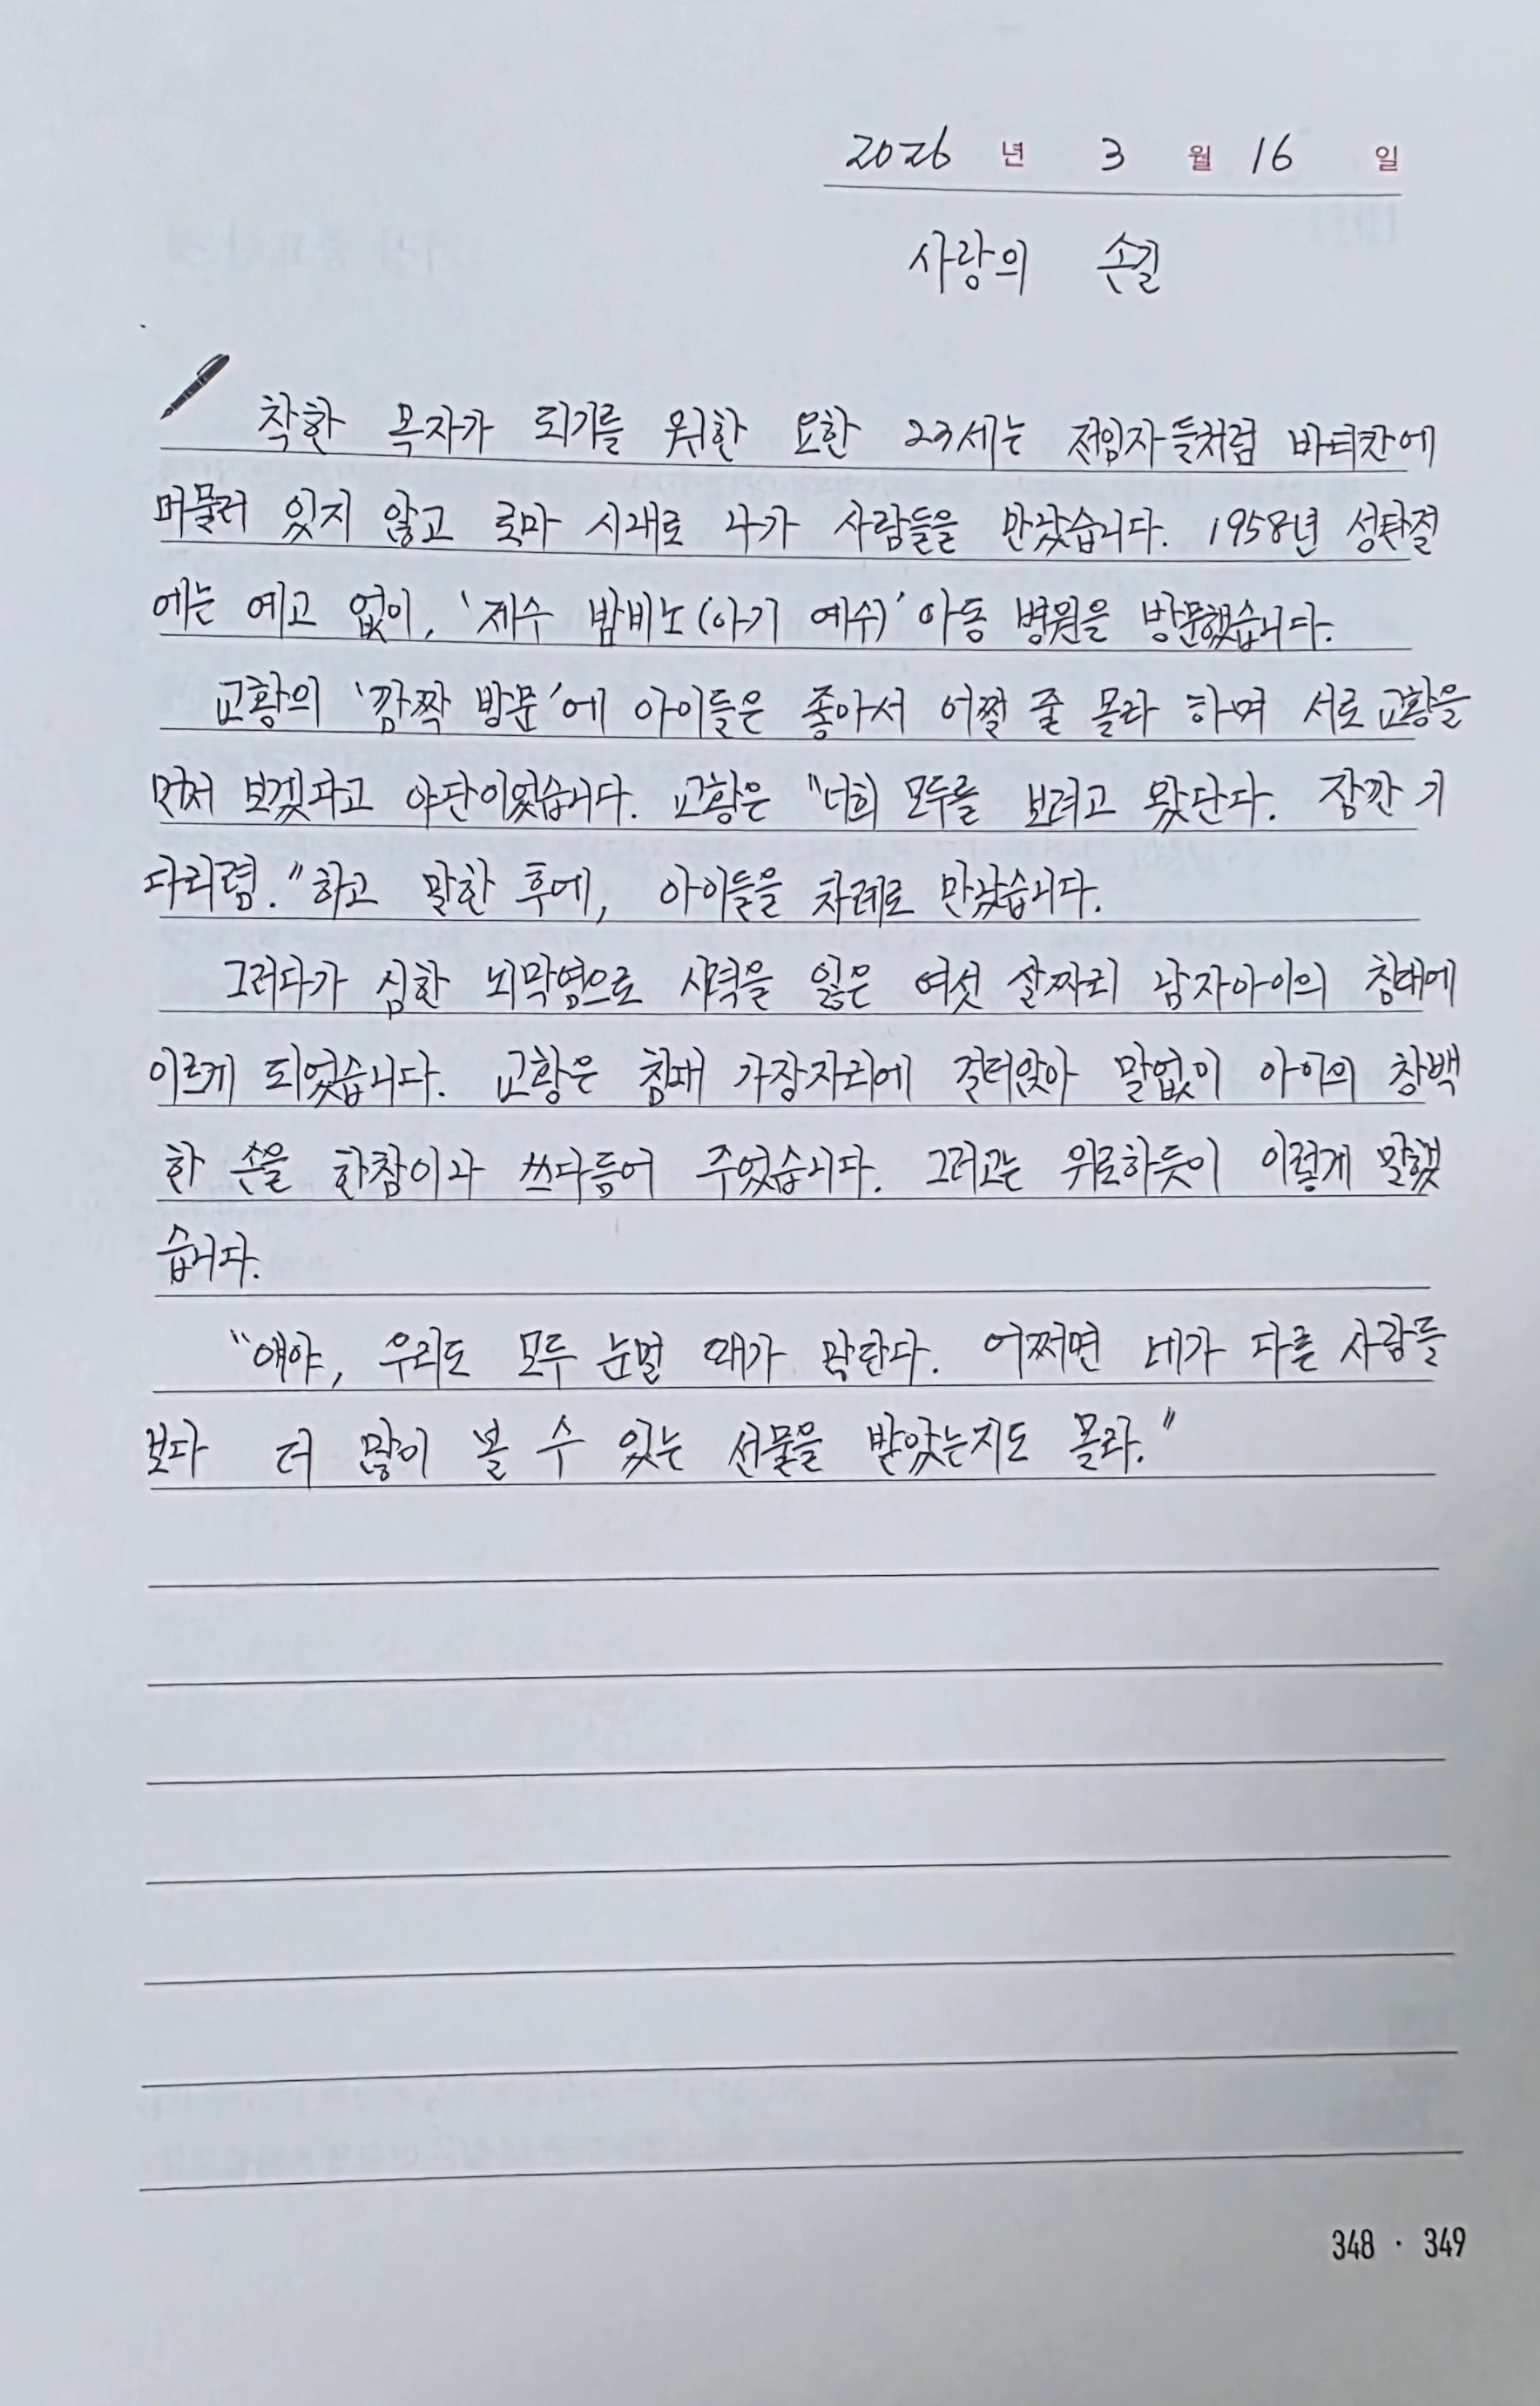 2026 년 3 월 16 일
사랑의 손길
착한 목자가 되기를 위한 요한 23세는 전임자들처럼 바티칸에
머물러 있지 않고 로마 시내로 나가 사람들을 만났습니다. 1958년 성탄절
에는 예고 없이, '제수 밤비노(아기 예수)' 아동 병원을 방문했습니다.
교황의 '깜짝 방문'에 아이들은 좋아서 어쩔 줄 몰라 하며 서로 교황을
먼저 보겠다고 야단이었습니다. 교황은 "너희 모두를 보려고 왔단다. 잠깐 기
다리렴." 하고 말한 후에, 아이들을 차례로 만났습니다.
그러다가 심한 뇌막염으로 시력을 잃은 여섯 살짜리 남자아이의 침대에
이르게 되었습니다. 교황은 침대 가장자리에 걸터앉아 말없이 아이의 창백
한 손을 한참이나 쓰다듬어 주었습니다. 그러고는 위로하듯이 이렇게 말했
습니다.
"얘야, 우리도 모두 눈멀 때가 많단다. 어쩌면 네가 다른 사람들
보다 더 많이 볼 수 있는 선물을 받았는지도 몰라."
348 · 349